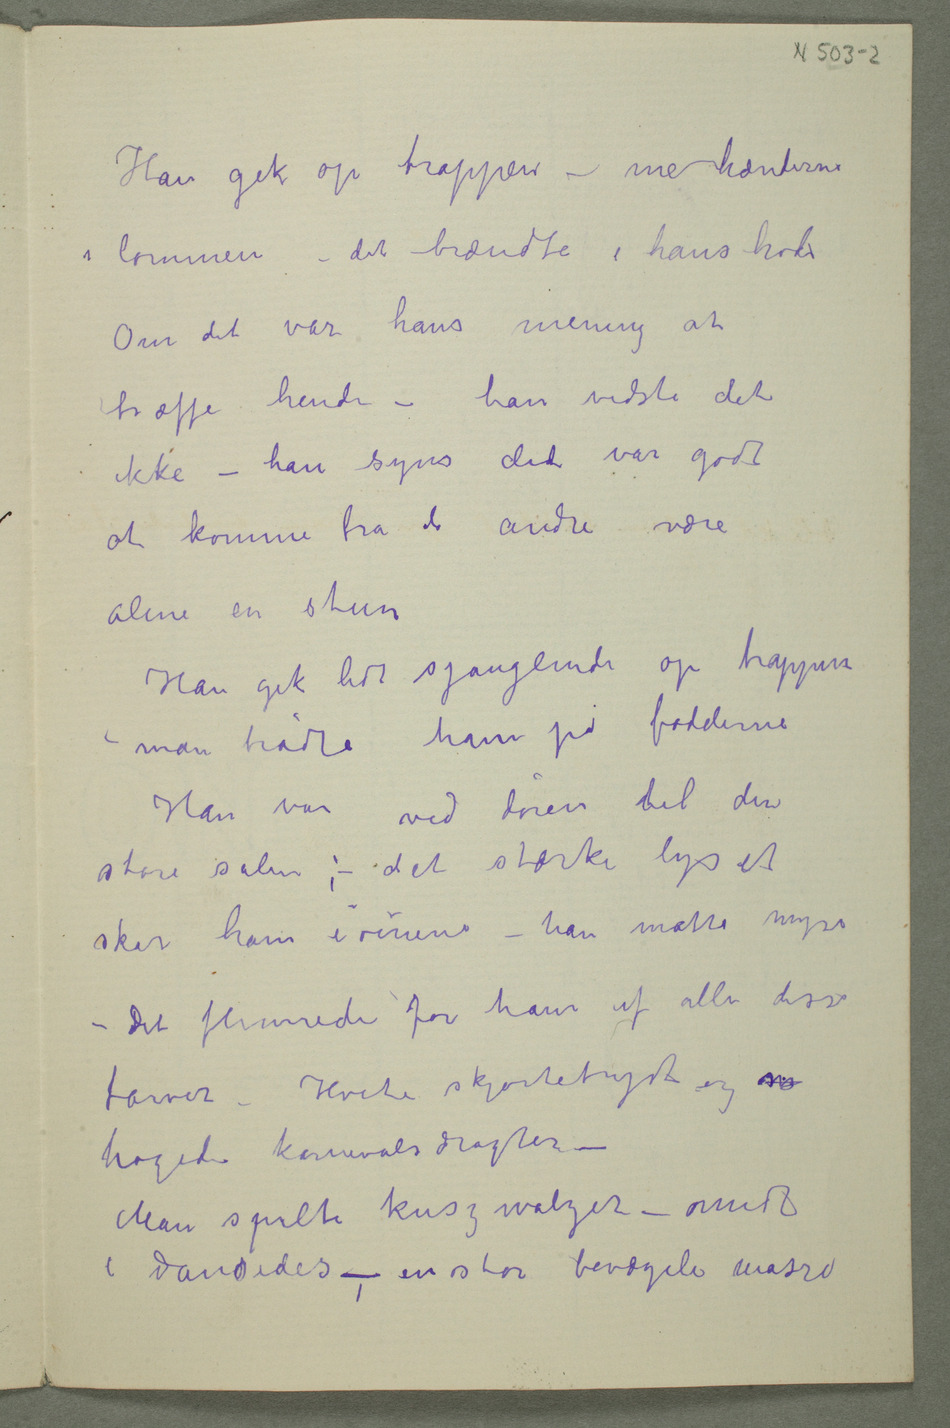 N 503-2
Han gek op trappen – me hænderne
i lommen – det brændte i hans hode
Om det var hans mening at
træffe hende – han vidste det
ikke – han syns det var godt
at komme fra de andre være
alene en stun
Han gek lidt sjanglende op trappen
– man trådte ham på fødderne
Han var ved døren til den
store salen ;– det stærke lyset
skar ham i øinene – han måtte myse
– Det flimrede for ham af alle disse
farver – Hvite skjortebryst og
brogede karnevalsdragter –
Man spilte kusz walzer – omidt
i dansedes – en stor bevægeli masse